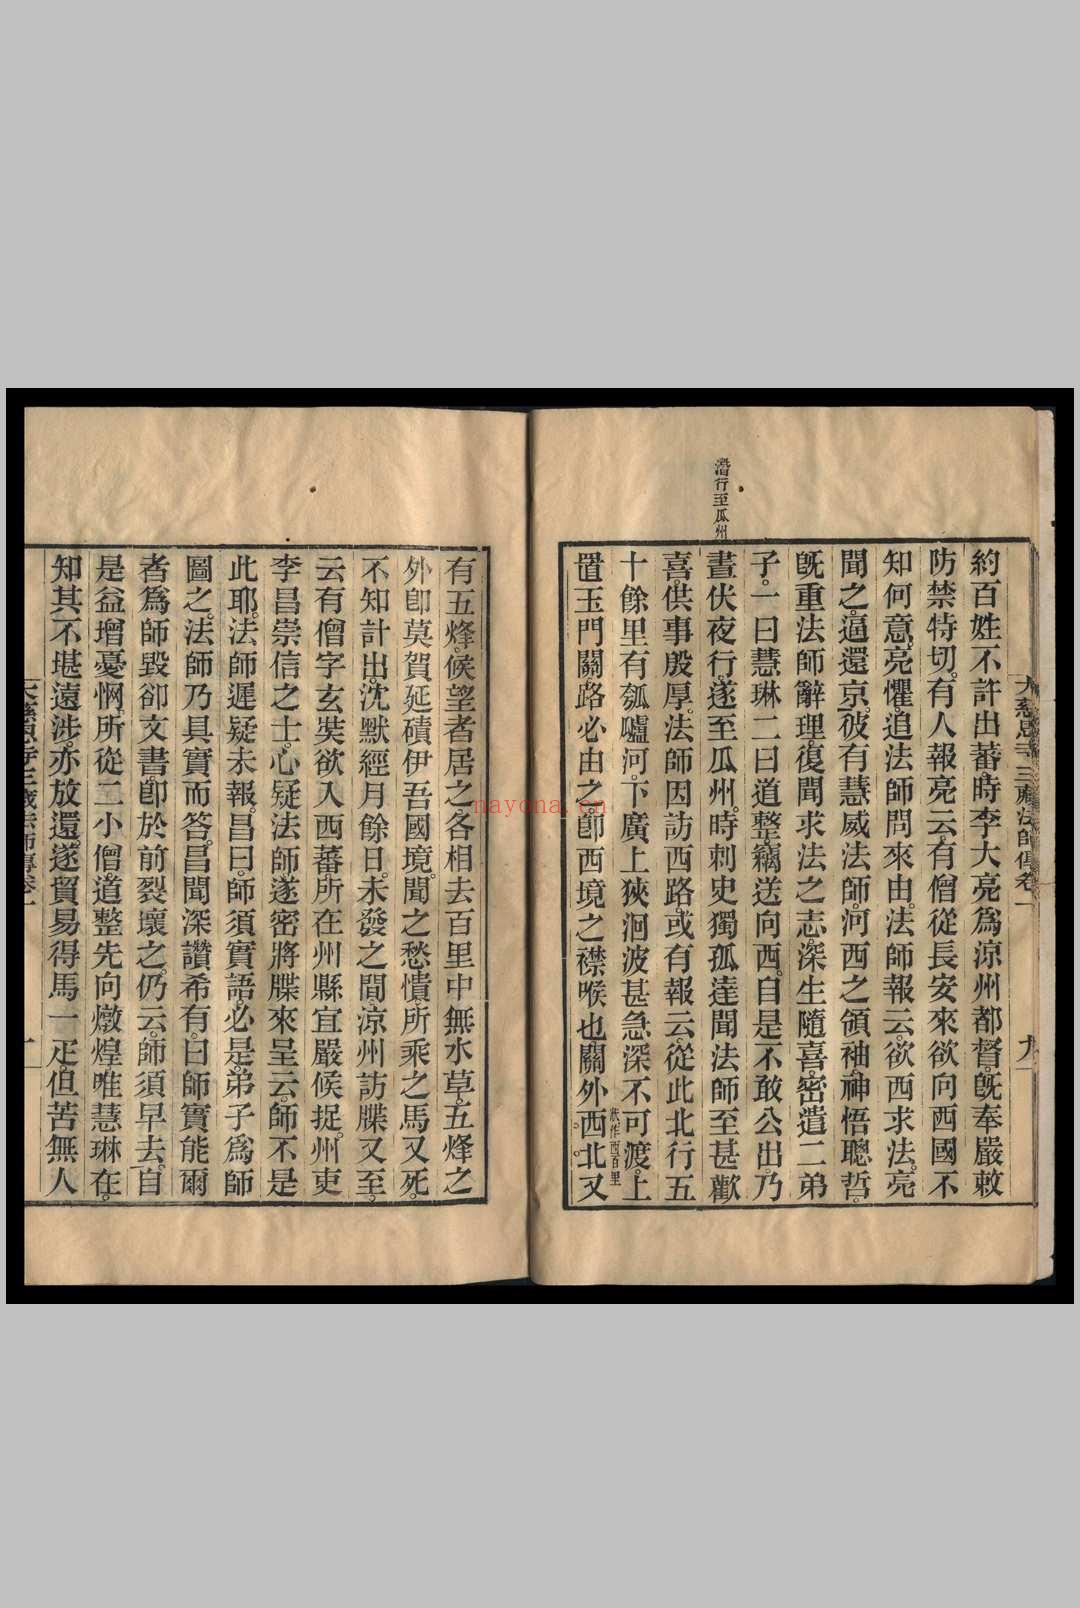 大慈恩寺三藏法師傳卷一
九
潛行至瓜州
約百姓不許出蕃。時李大亮爲涼州都督。旣奉嚴敕
防禁特切。有人報亮云。有僧從長安來欲向西國不
知何意。亮懼。追法師問來由。法師報云。欲西求法。亮
聞之。逼還京。彼有慧威法師。河西之領袖。神悟聰哲。
旣重法師辭理。復聞求法之志。深生隨喜。密遣二弟
子。一曰慧琳二曰道整。竊送向西。自是不敢公出。乃
晝伏夜行。遂至瓜州。時刺史獨孤達聞法師至甚歡
喜。供事殷厚。法師因訪西路。或有報云。從此北行五
十餘里有瓠𤬛河。下廣上狹洄波甚急。深不可渡。上
置玉門關。路必由之。卽西境之襟喉也。關外西。北又
有五烽。候望者居之。各相去百里中無水草。五烽之
外卽莫賀延磧伊吾國境。聞之愁憒。所乘之馬又死。
不知計出。沈默經月餘日。未發之間。涼州訪牒又至。
云有僧字玄奘欲入西蕃。所在州縣宜嚴候捉。州吏
李昌崇信之士。心疑法師。遂密將牒來呈云。師不是
此耶。法師遲疑未報。昌曰。師須實語。必是。弟子爲師
圖之。法師乃具實而答。昌聞深讚希有。曰師實能爾
者爲師毀卻文書。卽於前裂壞之。仍云。師須早去。自
是益增憂惘。所從二小僧。道整先向燉煌。唯慧琳在。
知其不堪遠涉。亦放還。遂貿易得馬一疋。但苦無人
大慈恩寺三藏法師傳卷一
nayona.cn